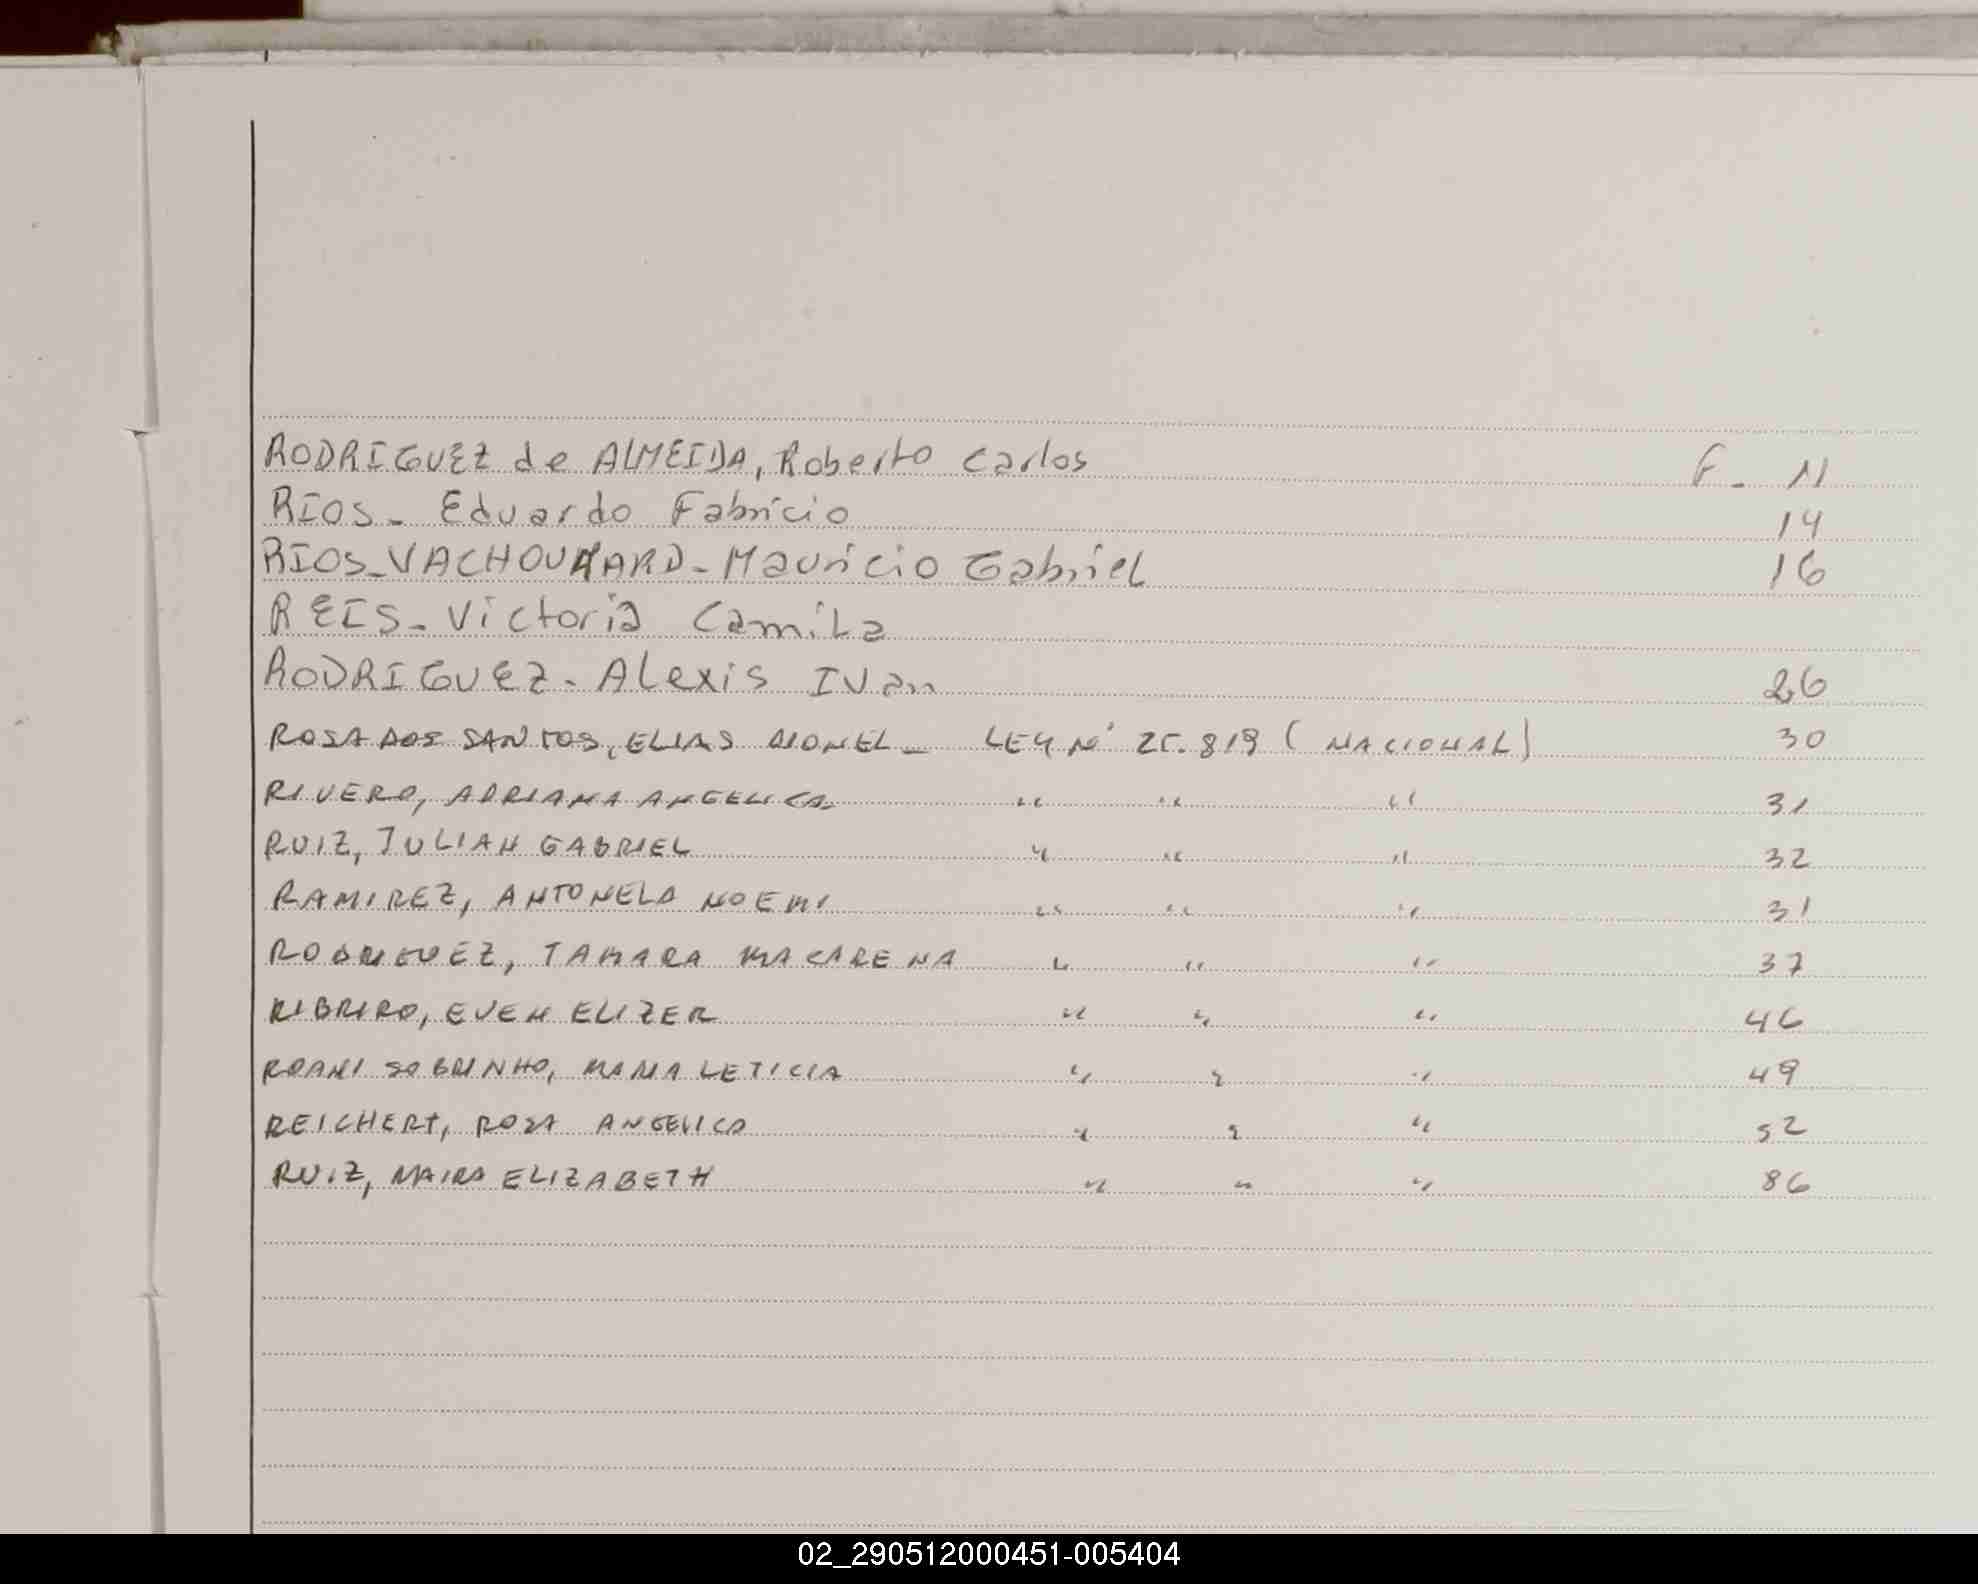 RODRIGUEZ de ALMEIDA, Roberto Carlos F. 11
RIOS - Eduardo Fabricio 14
RIOS - VACHOUHARD - Mauricio Gabriel 16
REIS - Victoria Camila
RODRIGUEZ - Alexis Ivan 26
ROSA DOS SANTOS, ELIAS LIONEL - LEY Nº 25.819 (NACIONAL) 30
RIVERO, ADRIANA ANGELICA " " " 31
RUIZ, JULIAN GABRIEL " " " 32
RAMIREZ, ANTONELA NOEMI " " " 31
RODRIGUEZ, TAMARA MACARENA " " " 37
RIBRIRO, EVEN ELIZER " " " 46
ROANI SOBRINHO, MARIA LETICIA " " " 49
REICHERT, ROSA ANGELICA " " " 52
RUIZ, MAIRA ELIZABETH " " " 86
02_290512000451-005404